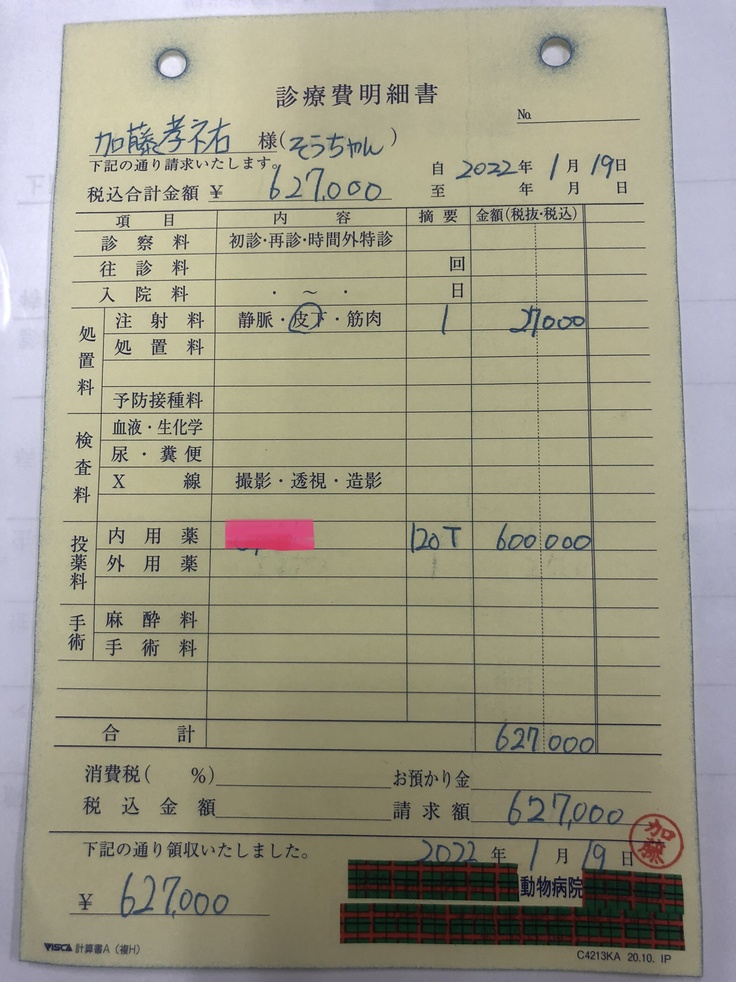 診療費明細書
No.
加藤孝祐 様(そうちゃん)
下記の通り請求いたします。
自 2022年 1月 19日
税込合計金額 ¥ 627,000
至 年 月 日
項目 内容 摘要 金額(税抜・税込)
診察料 初診・再診・時間外特診
往診料 回
入院料 ・ 〜 ・ 日
処置料
注射料 静脈・皮下・筋肉 1 27000
処置料
予防接種料
検査料
血液・生化学
尿・糞便
X線 撮影・透視・造影
投薬料
内用薬 120T 600000
外用薬
手術
麻酔料
手術料
合計 627000
消費税( %) お預かり金
税込金額 請求額 627,000
下記の通り領収いたしました。 2022年 1月 19日
加藤
¥ 627,000
動物病院
VISCA 計算書A(複H)
C4213KA 20.10. IP